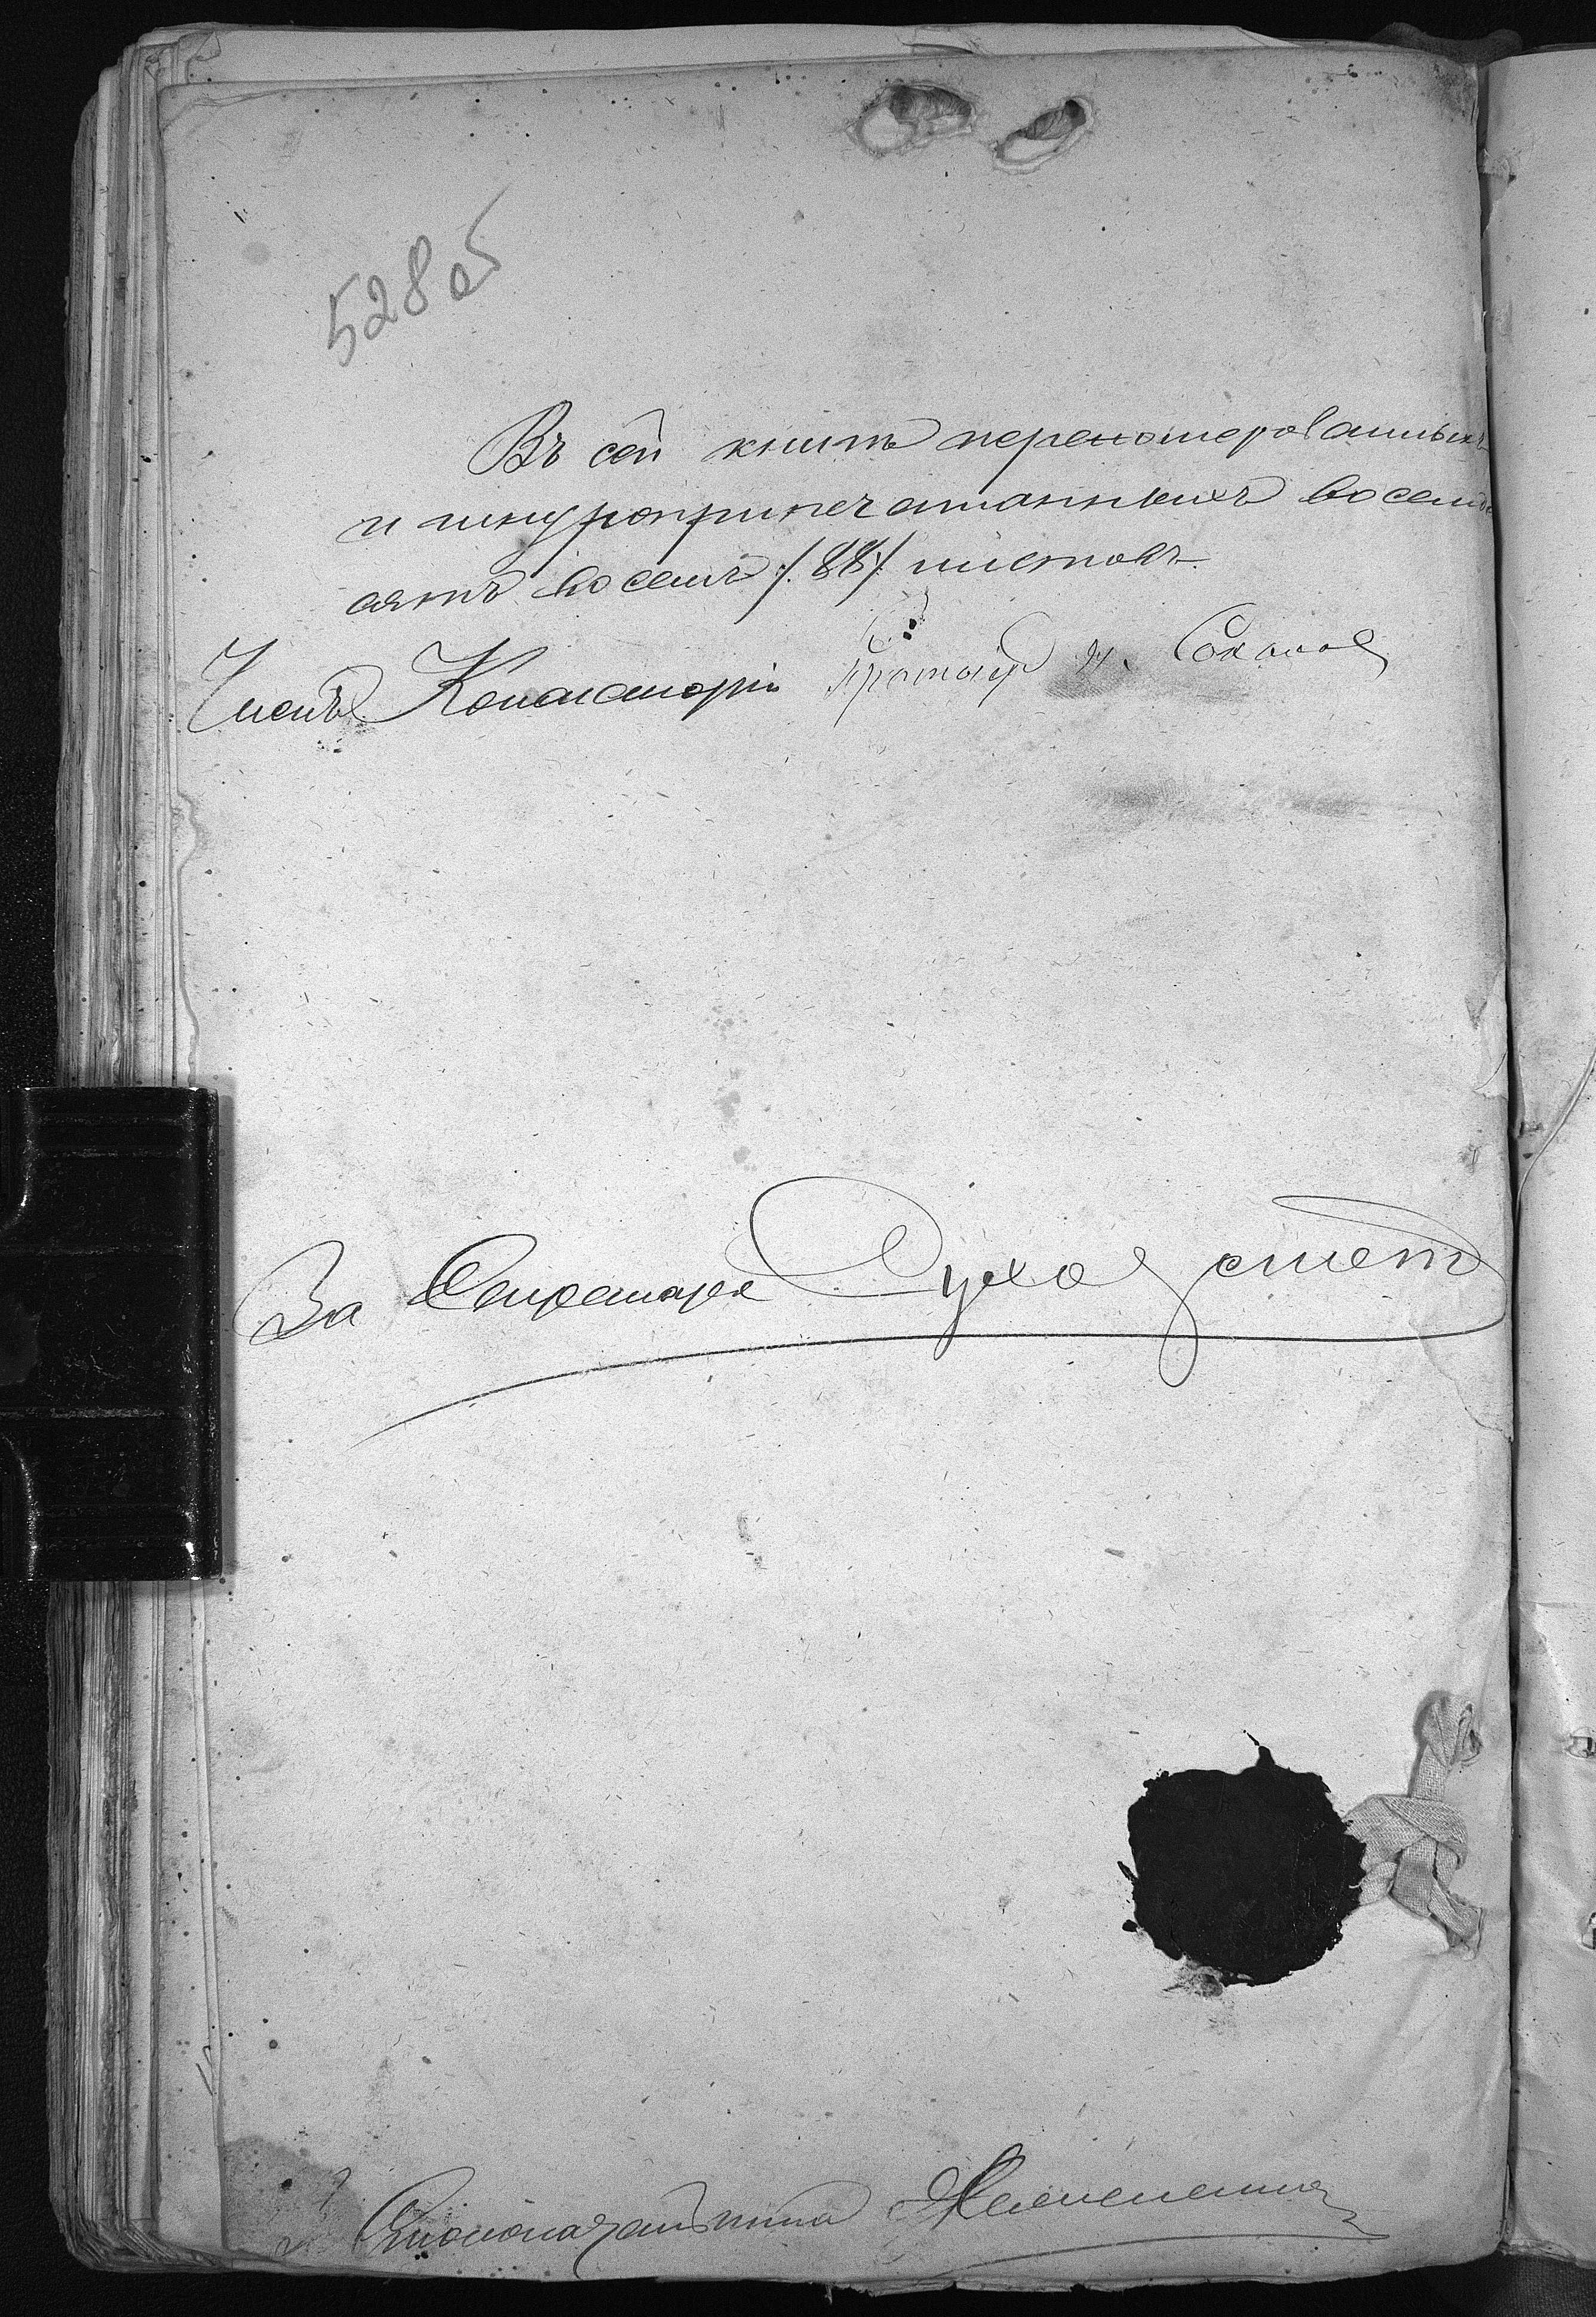 528 об
Въ сей книгѣ переномерованныхъ
и шнуроприпечатанныхъ восемьде
сятъ восемь /.88./ листовъ.
Членъ Консисторіи Протоіер И. Соколов
За Секретаря
Столоначальника